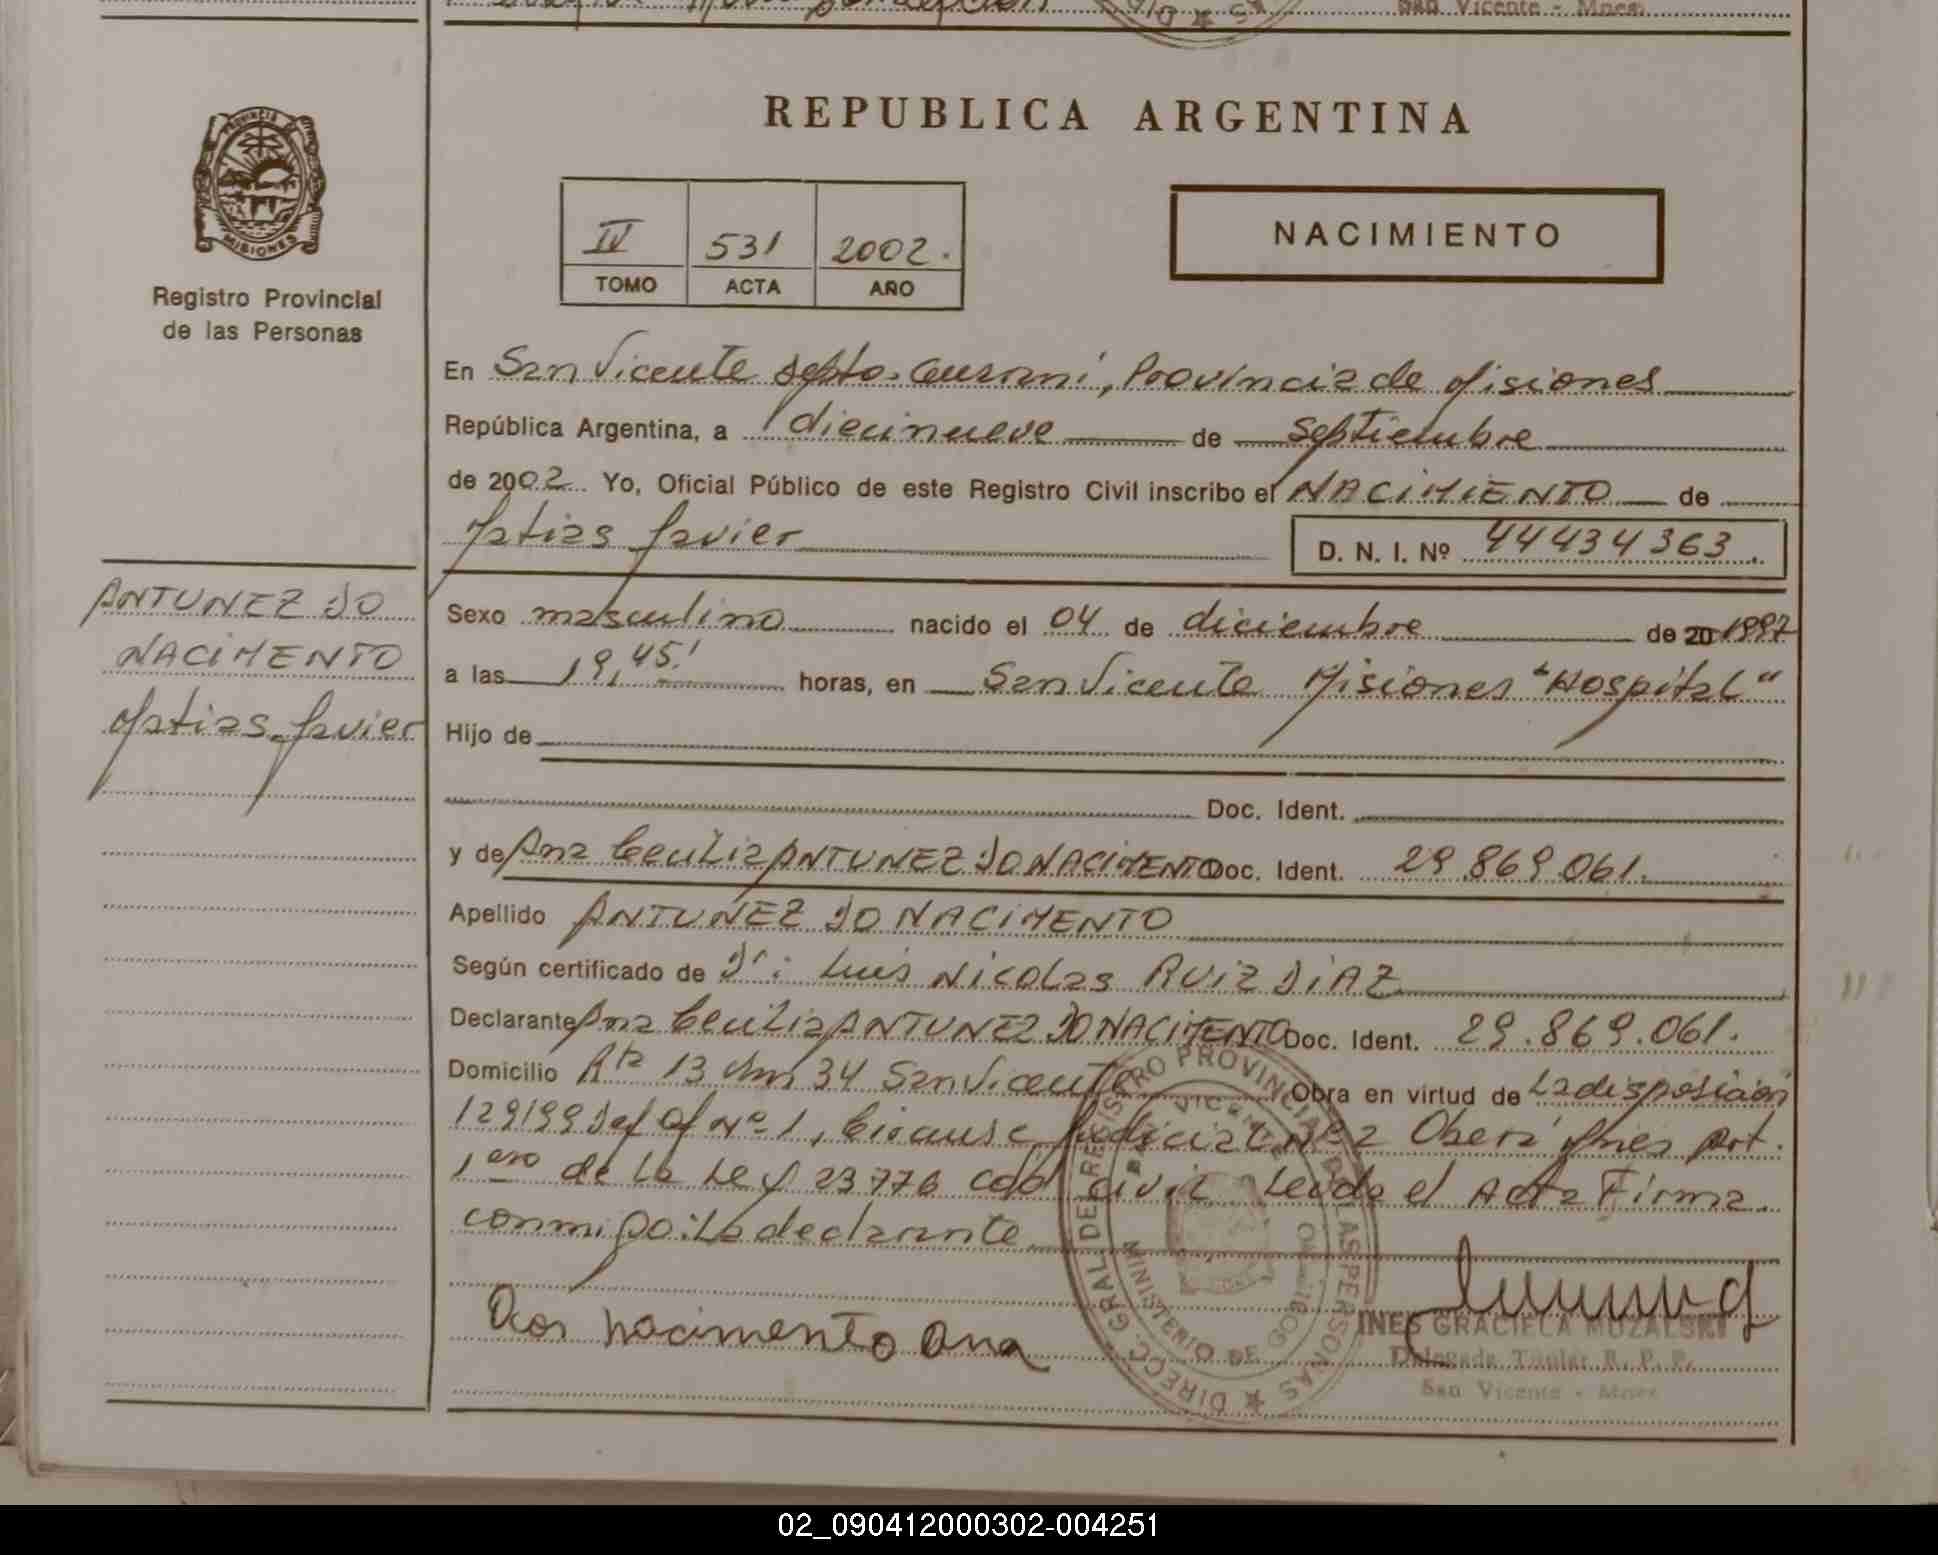 San Vicente - Mnes.
PROVINCIA DE
MISIONES
Registro Provincial
de las Personas
REPUBLICA ARGENTINA
IV 531 2002.
TOMO ACTA AÑO
NACIMIENTO
En San Vicente Dpto. Guaraní, Provincia de Misiones
República Argentina, a diecinueve de Septiembre
de 2002 Yo, Oficial Público de este Registro Civil inscribo el NACIMIENTO de
Matias Javier D. N. I. Nº 44434363.
ANTUNEZ DO
NACIMENTO
Matias Javier
Sexo masculino nacido el 04 de diciembre de 20 1997
a las 19,45' horas, en San Vicente Misiones "Hospital"
Hijo de
Doc. Ident.
y de Ana Cecilia ANTUNEZ DO NACIMENTO Doc. Ident. 29.869.061.
Apellido ANTUNEZ DO NACIMENTO
Según certificado de Dr: Luis Nicolas RUIZ DIAZ
Declarante Ana Cecilia ANTUNEZ DO NACIMENTO Doc. Ident. 29.869.061.
Domicilio Rta 13 Km 34 San Vicente Obra en virtud de La disposición
129/99 Def Of Nº 1, Circunsc Judicial Nº 2 Oberá Mnes Art.
1ero de la Ley 23776 Cód civil Leida el Acta Firma
conmigo: La declarante
Dos nacimento Ana
DIRECC. GRAL DE REGISTRO PROVINCIAL DE LAS PERSONAS
SAN VICENTE
MINISTERIO DE GOBIERNO
INES GRACIELA MUZALSKI
Delegada Titular R. P. P.
San Vicente - Mnes
02_090412000302-004251